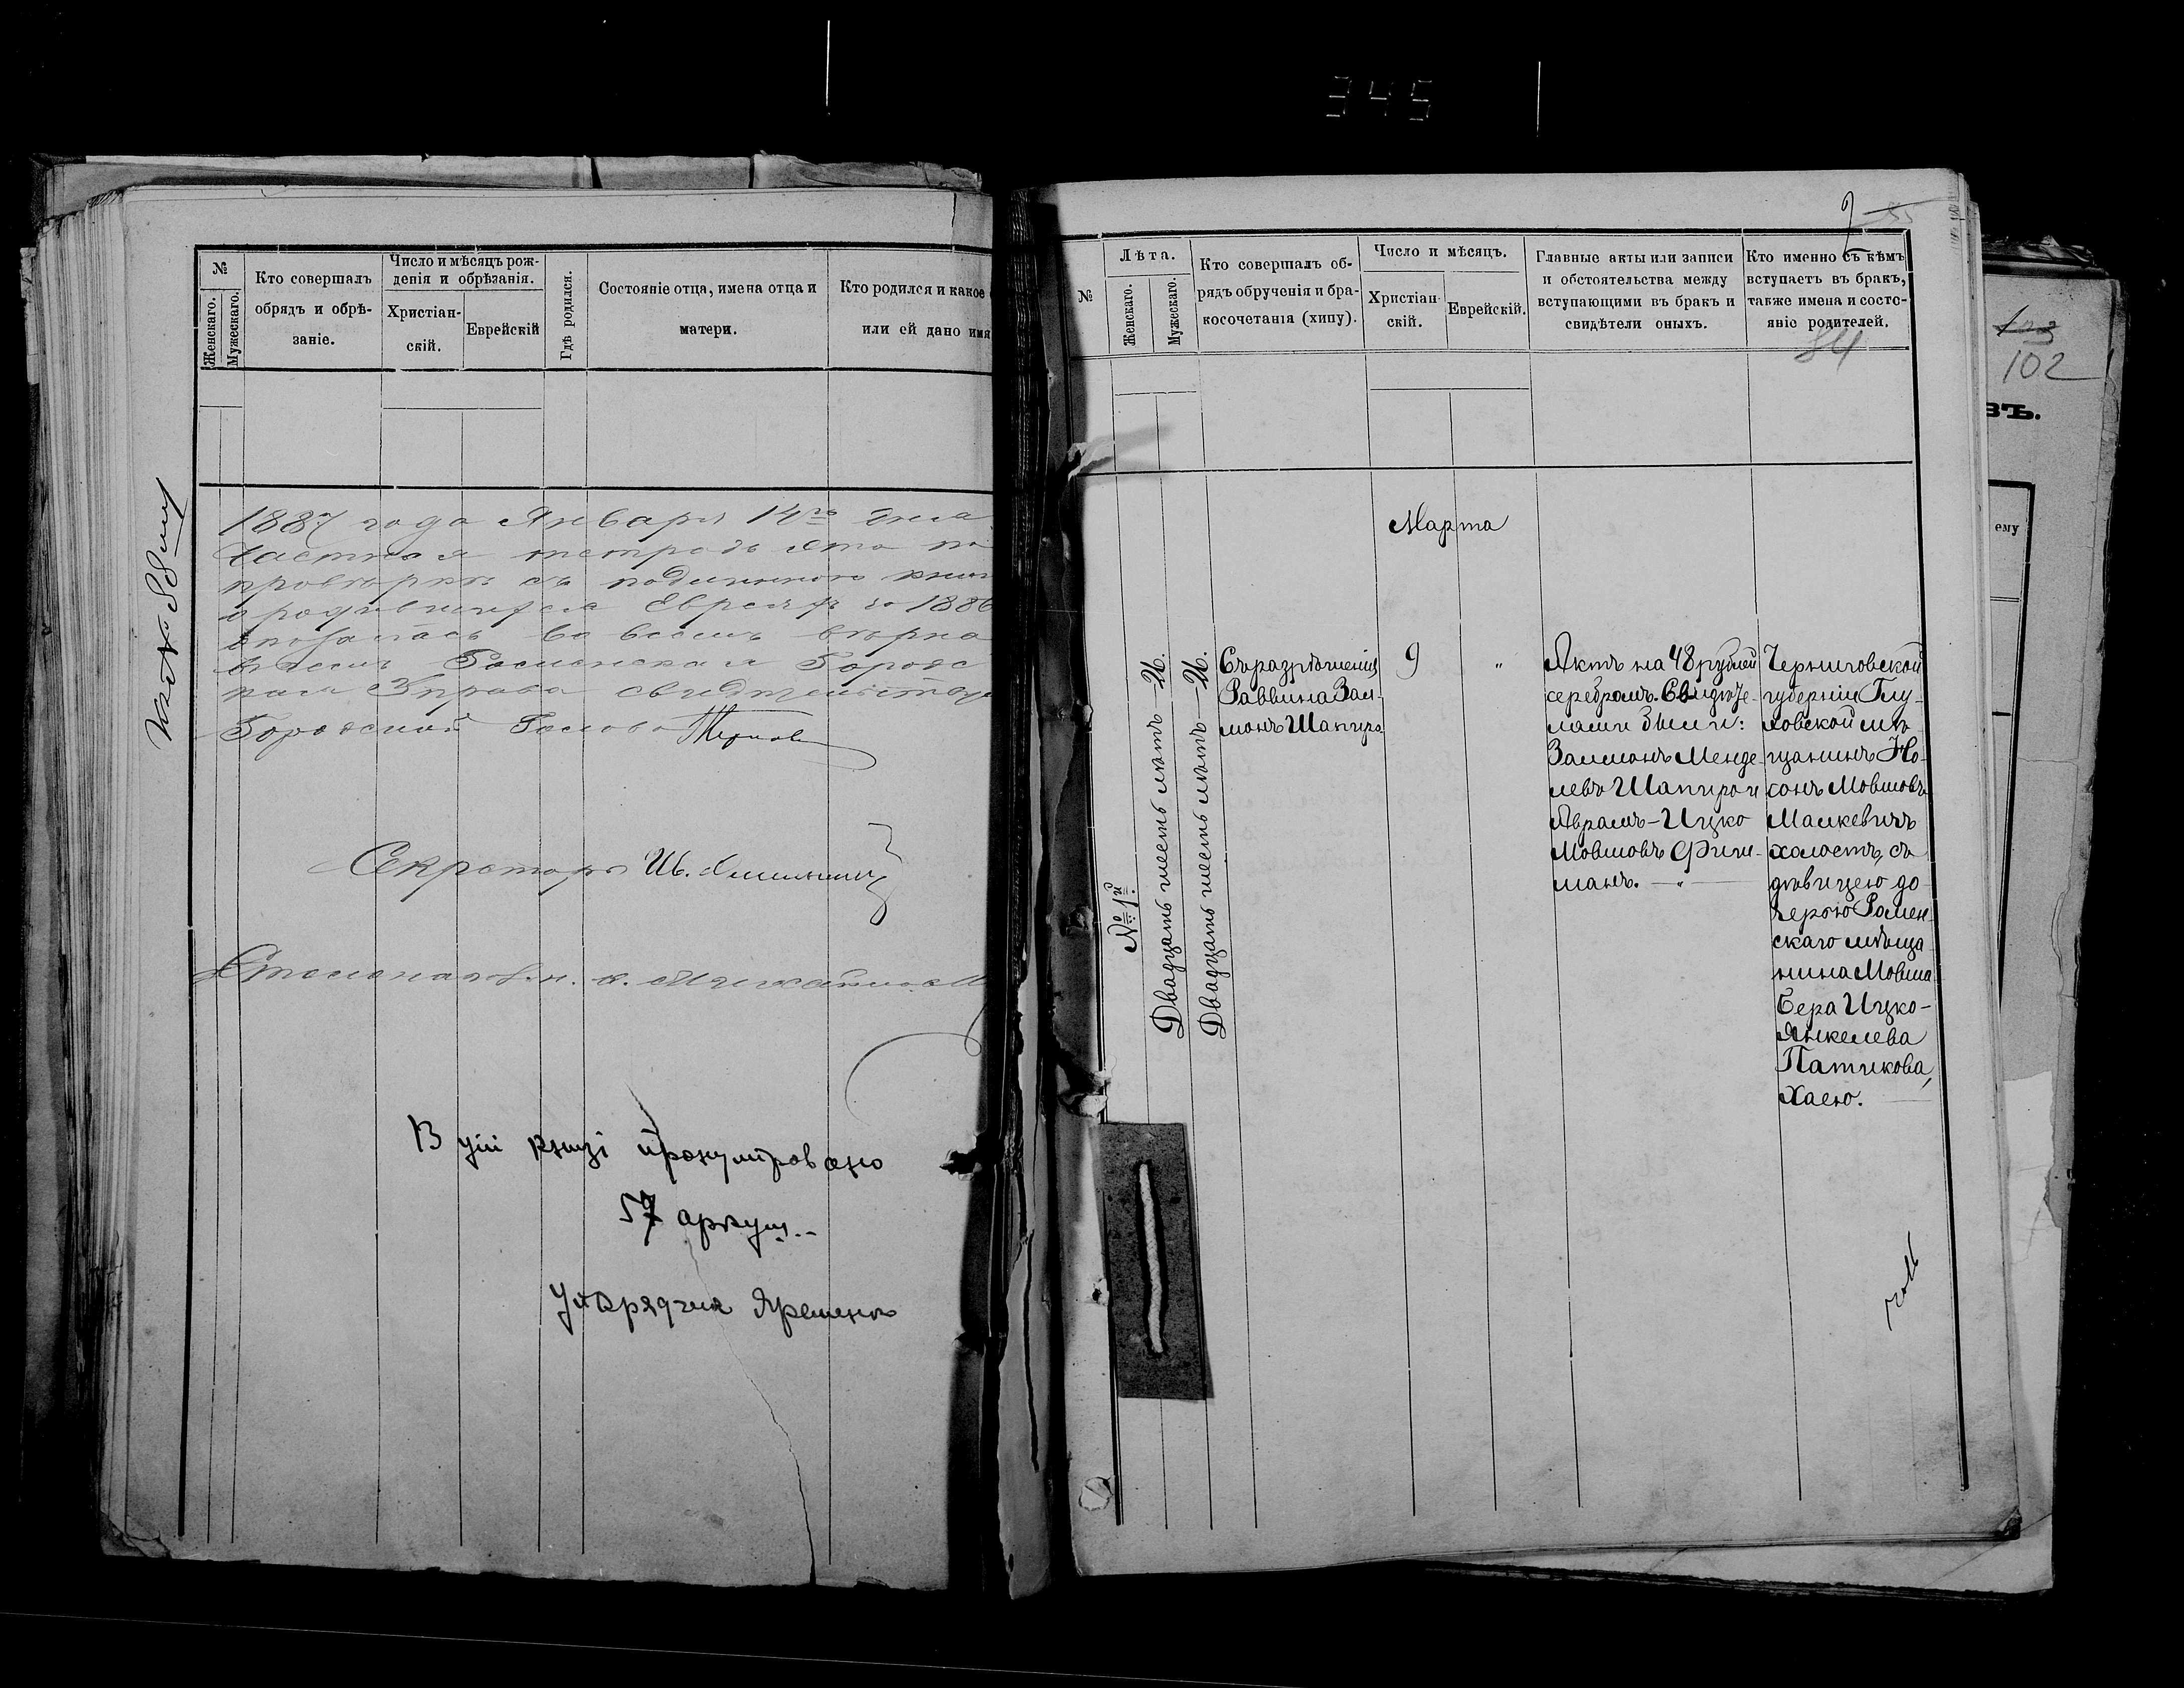 345
№
Женскаго.
Мужескаго.
Кто совершалъ
обрядъ и обрѣ-
заніе.
Число и мѣсяцъ рож-
денія и обрѣзанія.
Христіан-
скій.
Еврейскій
Гдѣ родился.
Состояніе отца, имена отца и
матери.
Кто родился и какое
или ей дано имя
1887 года Января 14го дня
Частная тетрадь эта по
провѣркѣ съ подлинною
о родившихся Евреяхъ за 1886
оказалась во всемъ вѣрна
въ чемъ Роменская Городс
кая Управа свидѣтельствуе
Городской Голова
Секретарь Ив.
В цій книзі пронумеровано
57 аркуш..
Упорядчик Яременко
№
Лѣта.
Женскаго.
Мужескаго.
Кто совершалъ об-
рядъ обрученія и бра-
косочетанія (хипу).
Число и мѣсяцъ.
Христіан-
скій.
Еврейскій.
Главные акты или записи
и обстоятельства между
вступающими въ бракъ и
свидѣтели оныхъ.
Кто именно съ кѣмъ
вступаетъ въ бракъ,
также имена и состо-
яніе родителей.
84
Марта
№ 1й
Двадцать шесть лѣтъ - 26.
Двадцать шесть лѣтъ - 26.
Съ разрѣшенія
Раввина Зал-
монъ Шапиро
9
"
Актъ на 48 рублей
серебромъ. Свидѣте-
лями были:
Залмонъ Менде-
левъ Шапиро и
Абрамъ-Ицко
Мовшовъ Фиш-
манъ. — " —
Черниговской
губерніи Глу-
ховской мѣ-
щанинъ Но-
сонъ Мовшовъ
Малкевичъ
холостъ, съ
дѣвицею до-
черью Ромен-
скаго мѣща-
нина Мовша
Бера Ицко-
Янкелева
Патикова,
Хаею.
102
въ.
ему